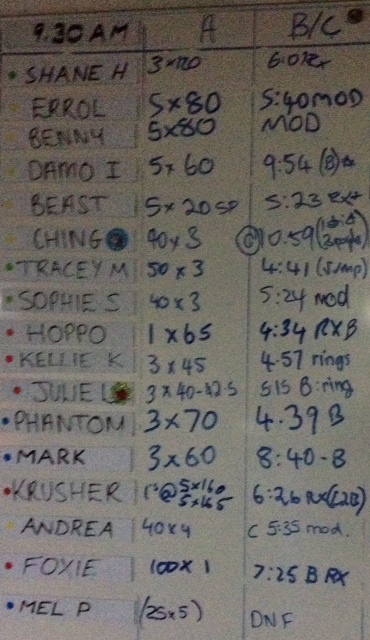 9.30 AM A B/C
SHANE H 3x120
ERROL 5x80 5:40 MOD
BENNY 5x80 MOD
DAMO I 5x60 9:54 (B)
BEAST 5x20 5:23 Rx
CHING 40x3 C 10.59
TRACEY M 50x3 4:41 (J/mp)
SOPHIE S 40x3 5:24 mod
HOPPO 1x65 4:34 RXB
KELLIE K 3x45 4.57 rings
JULIE L 3x40-42.5 5:15 B:ring
PHANTOM 3x70 4.39 B
MARK 3x60 8:40-B
KRUSHER @ 5x160
5x165 6:26 RX
ANDREA 40x4 C 5:35 mod.
FOXIE 100x1 7:25 B RX
MEL P (25x5) DNF